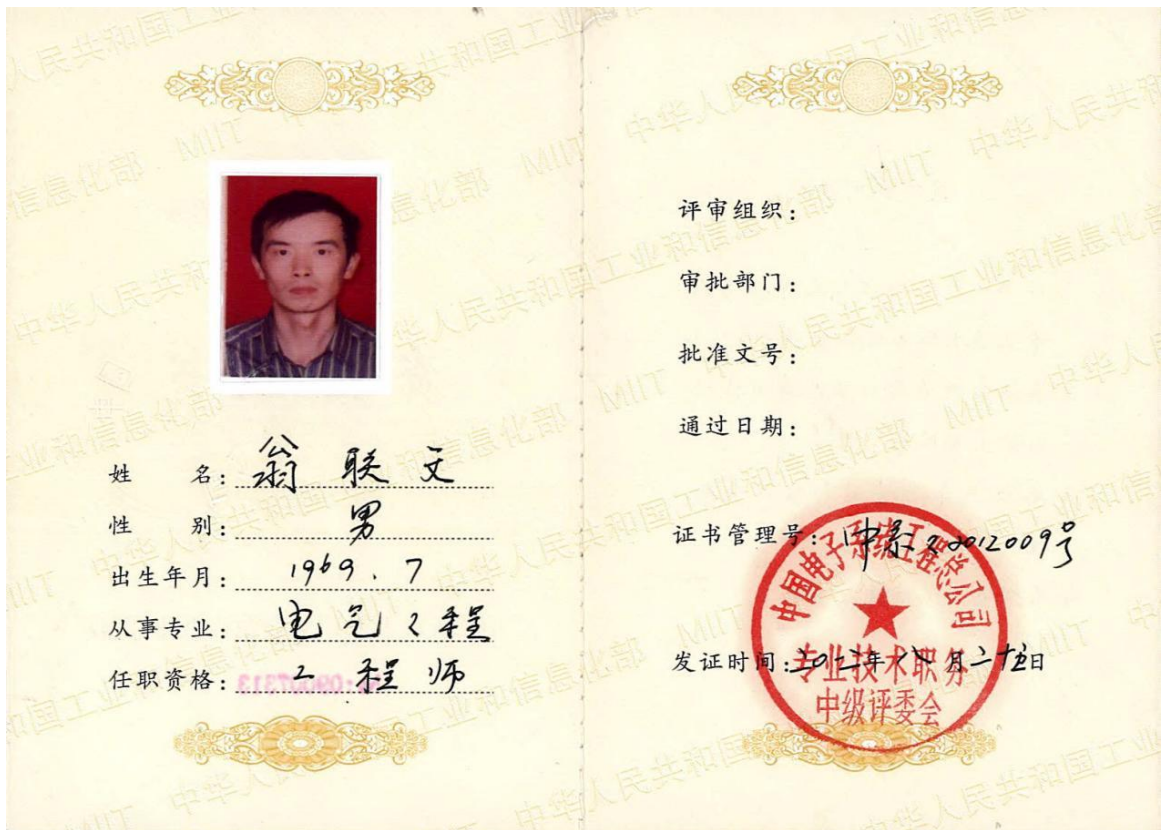 姓 名: 翁联文
性 别: 男
出生年月: 1969.7
从事专业: 电气工程
任职资格: 工程师
评审组织:
审批部门:
批准文号:
通过日期:
证书管理号: 2012009号
发证时间: 二〇一二年八月二十五日
中国电子系统工程总公司
专业技术职务
中级评委会
中华人民共和国工业和信息化部 MIIT